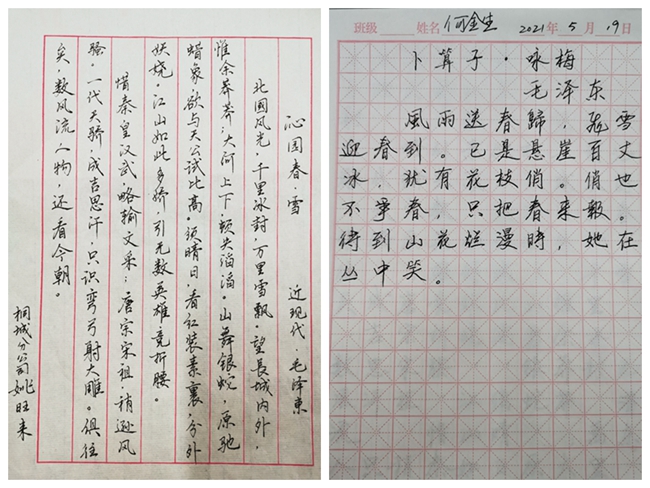 沁园春·雪 近现代·毛泽東
北國风光,千里冰封,万里雪飘。望長城内外,
惟余莽莽;大河上下,顿失滔滔。山舞银蛇,原驰
蜡象,欲与天公试比高。须晴日,看红装素裹,分外
妖娆。江山如此多娇,引无数英雄竞折腰。
惜秦皇汉武,略输文采;唐宗宋祖,稍逊风
骚。一代天骄,成吉思汗,只识弯弓射大雕。俱往
矣,数风流人物,还看今朝。
桐城分公司姚旺来
班级 姓名 何金生 2021年5月19日
卜算子·咏梅
毛泽东
風雨送春歸,飛雪
迎春到。已是悬崖百丈
冰,犹有花枝俏。俏也
不爭春,只把春来報。
待到山花烂漫時,她在
丛中笑。